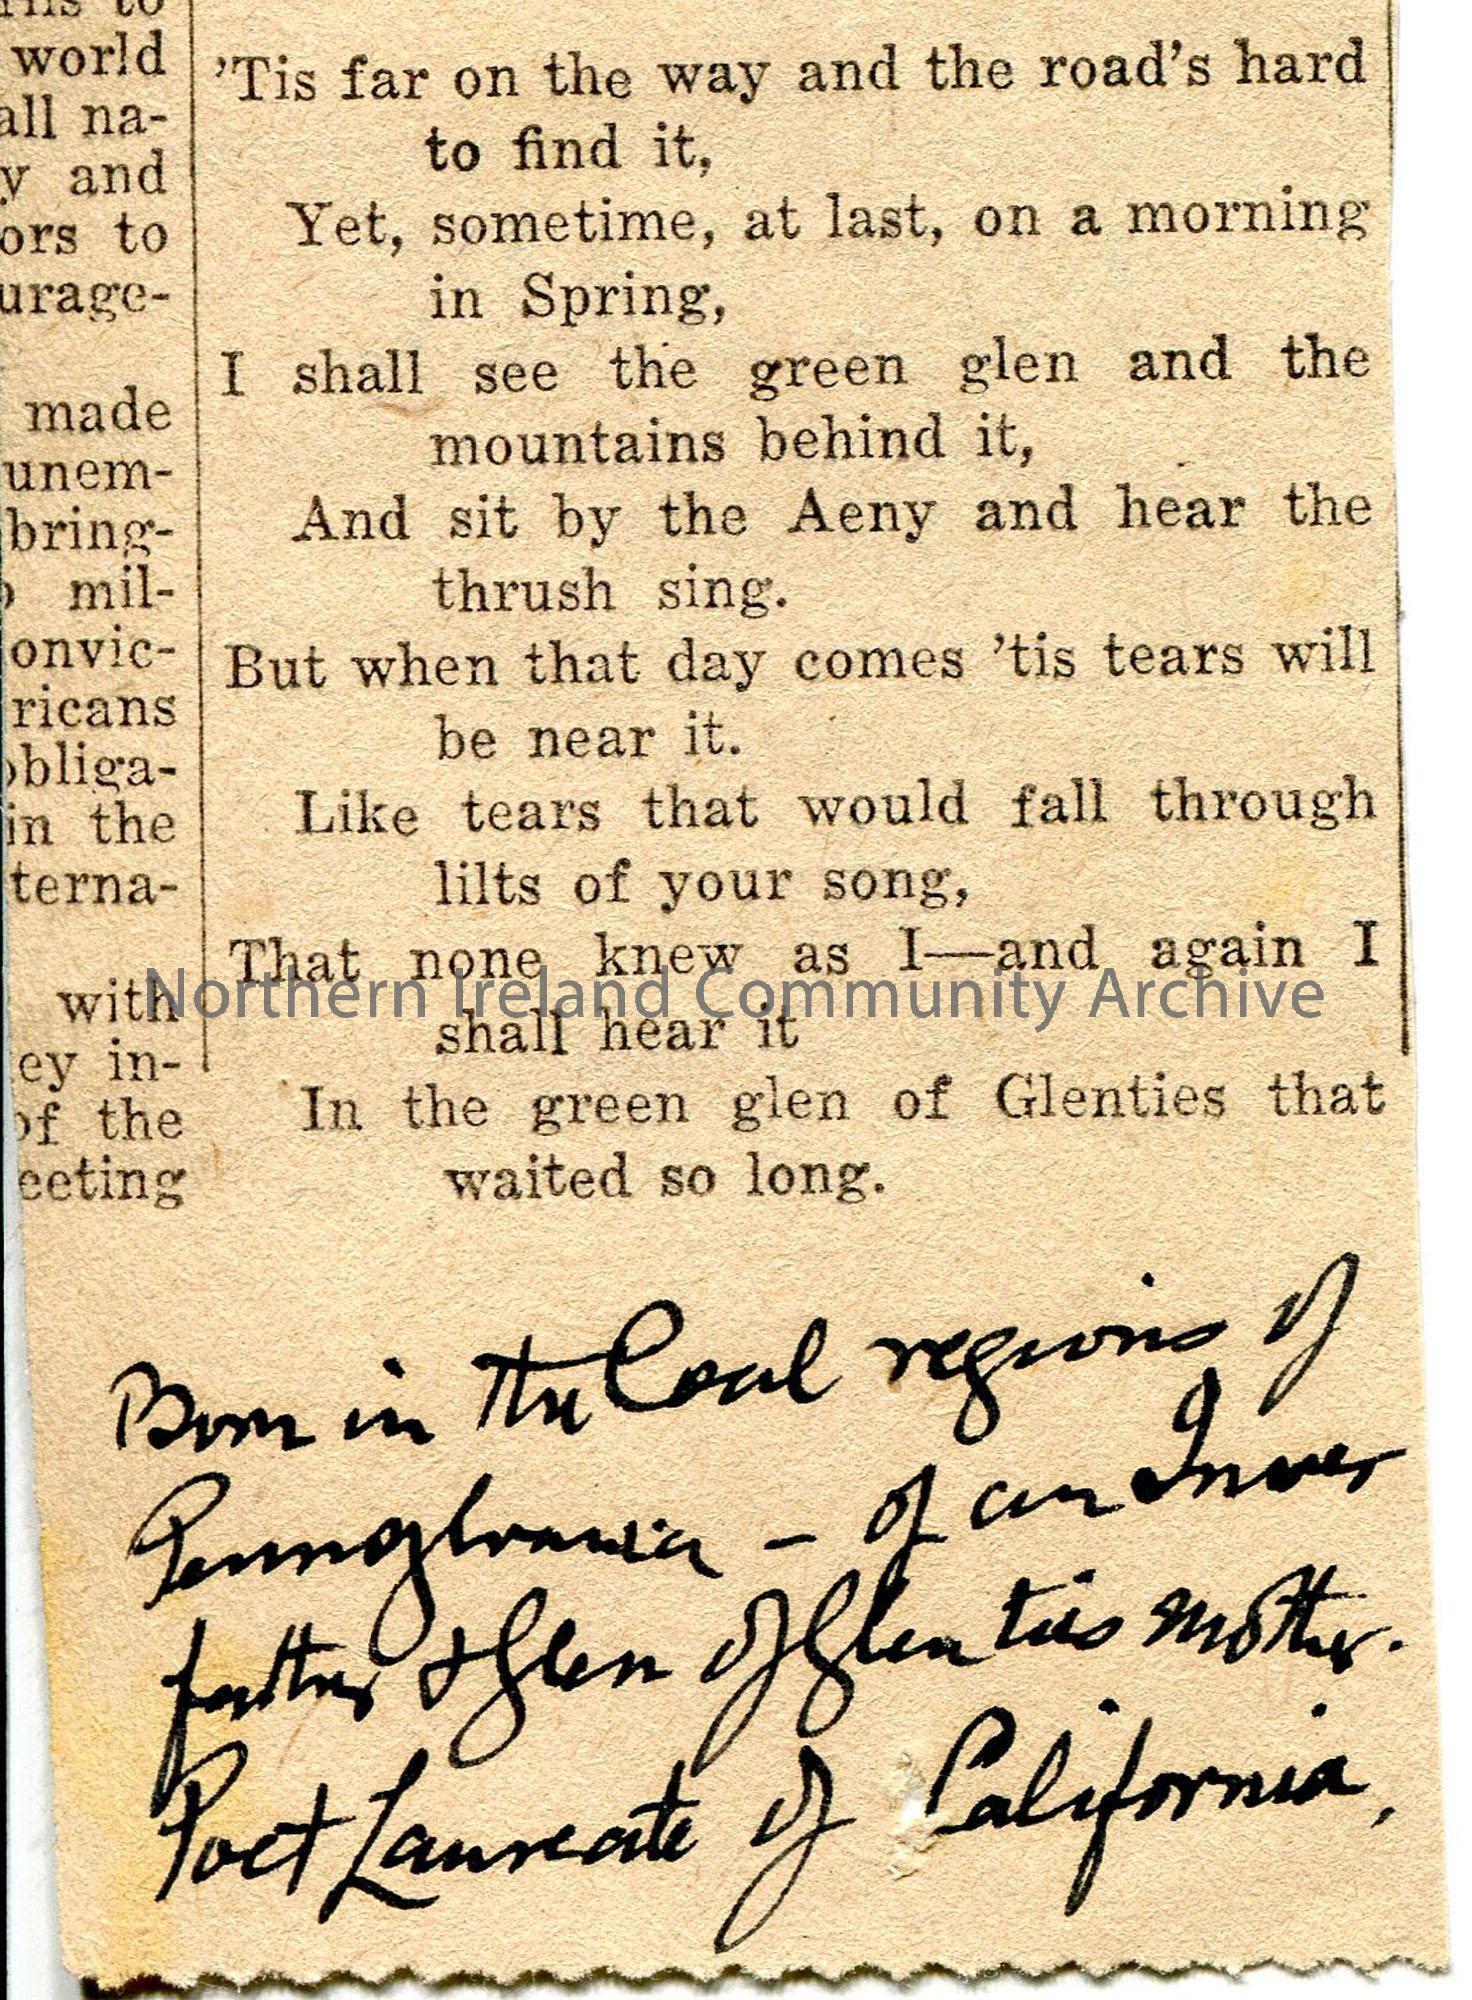 rns to
world
all na-
y and
ors to
urage-
made
unem-
bring-
mil-
onvic-
ricans
obliga-
in the
terna-
with
ey in-
of the
eeting
'Tis far on the way and the road's hard
to find it,
Yet, sometime, at last, on a morning
in Spring,
I shall see the green glen and the
mountains behind it,
And sit by the Aeny and hear the
thrush sing.
But when that day comes 'tis tears will
be near it.
Like tears that would fall through
lilts of your song,
That none knew as I—and again I
shall hear it
In the green glen of Glenties that
waited so long.
Northern Ireland Community Archive
Born in the Coal regions of
Pennsylvania – of an Inver
father & Glen of Glenties mother.
Poet Laureate of California,